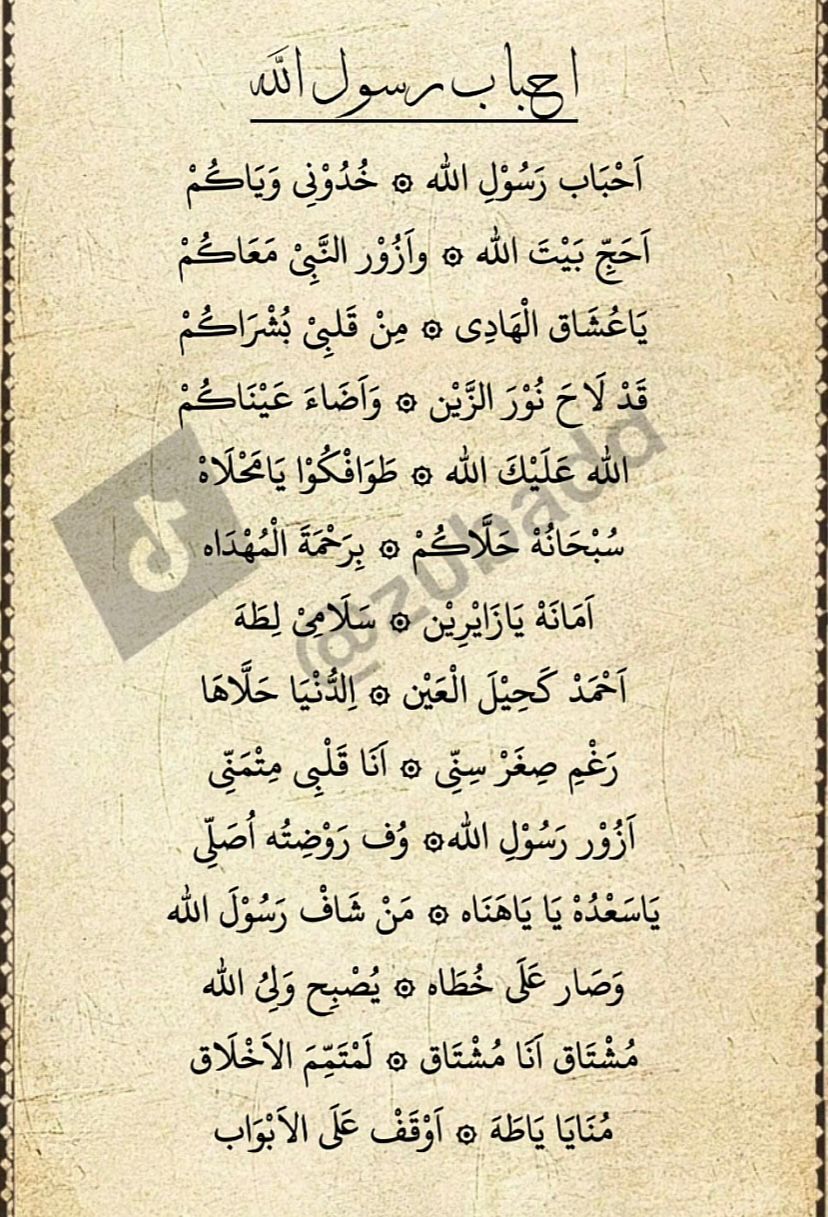 احباب رسول الله
اَحْبَاب رَسُوْلِ الله ۞ خُدُوْنِى وَيَاكُمْ
اَحَجِّ بَيْتَ الله ۞ واَزُوْر النَّبِىْ مَعَاكُمْ
يَاعُشَاق الْهَادِى ۞ مِنْ قَلبِىْ بُشْرَاكُمْ
قَدْ لَاحَ نُوْرَ الزَّيْن ۞ وَاَضَاءَ عَيْنَاكُمْ
الله عَلَيْكَ الله ۞ طَوَافْكُوْا يَامَحْلَاهْ
سُبْحَانُهْ حَلَّاكُمْ ۞ بِرَحْمَةَ الْمُهْدَاه
اَمَانَهْ يَازَايْرِيْن ۞ سَلَامِىْ لِطَهَ
اَحْمَدْ كَحِيْلَ الْعَيْن ۞ اِلدُّنْيَا حَلَّاهَا
رَغْمِ صِغَرْ سِنِّى ۞ اَنَا قَلْبِى مِتْمَنِّى
اَزُوْر رَسُوْلِ الله۞ وُف رَوْضِتُه اُصَلِّى
يَاسَعْدُهْ يَا يَاهَنَاه ۞ مَنْ شَافْ رَسُوْلَ الله
وَصَار عَلَى خُطَاه ۞ يُصْبِح وَلِىُ الله
مُشْتَاق اَنَا مُشْتَاق ۞ لَمْتَمِّمَ الاَخْلَاق
مُنَايَا يَاطَهَ ۞ اَوْقَفْ عَلَى الاَبْوَاب
@zubada